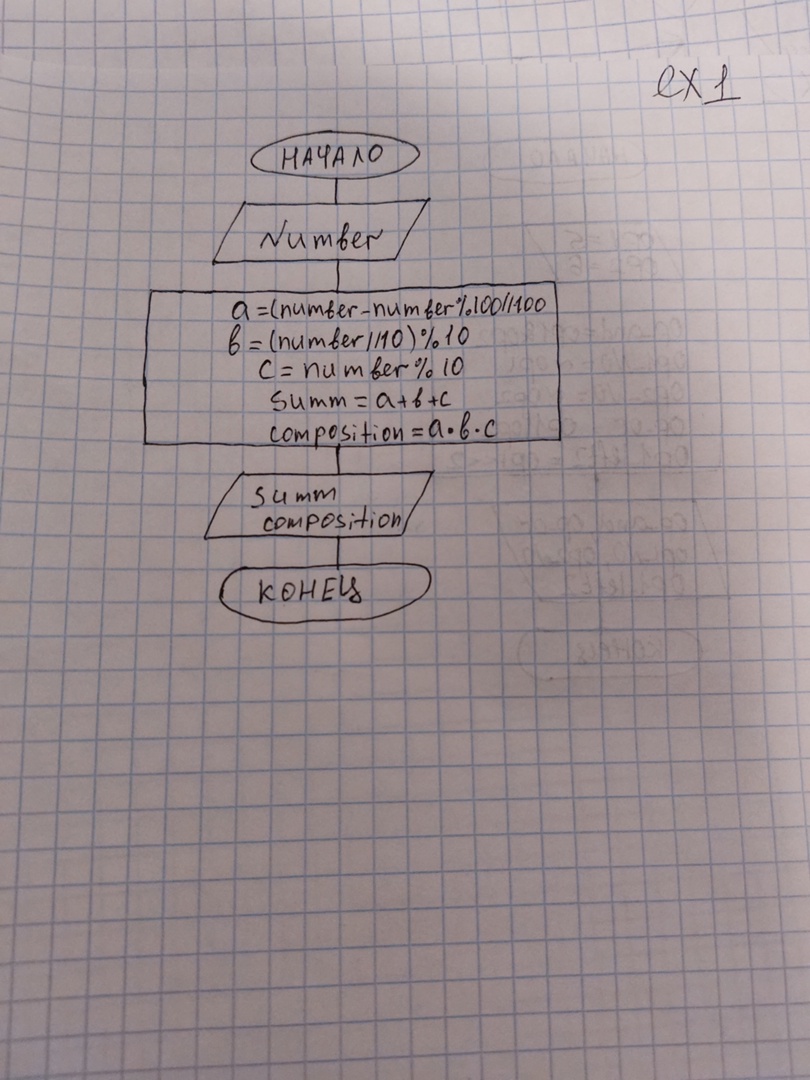 ex 1
НАЧАЛО
Number
a=(number-number%100//100
b=(number//10)%10
c=number%10
summ=a+b+c
composition=a•b•c
summ
composition
КОНЕЦ